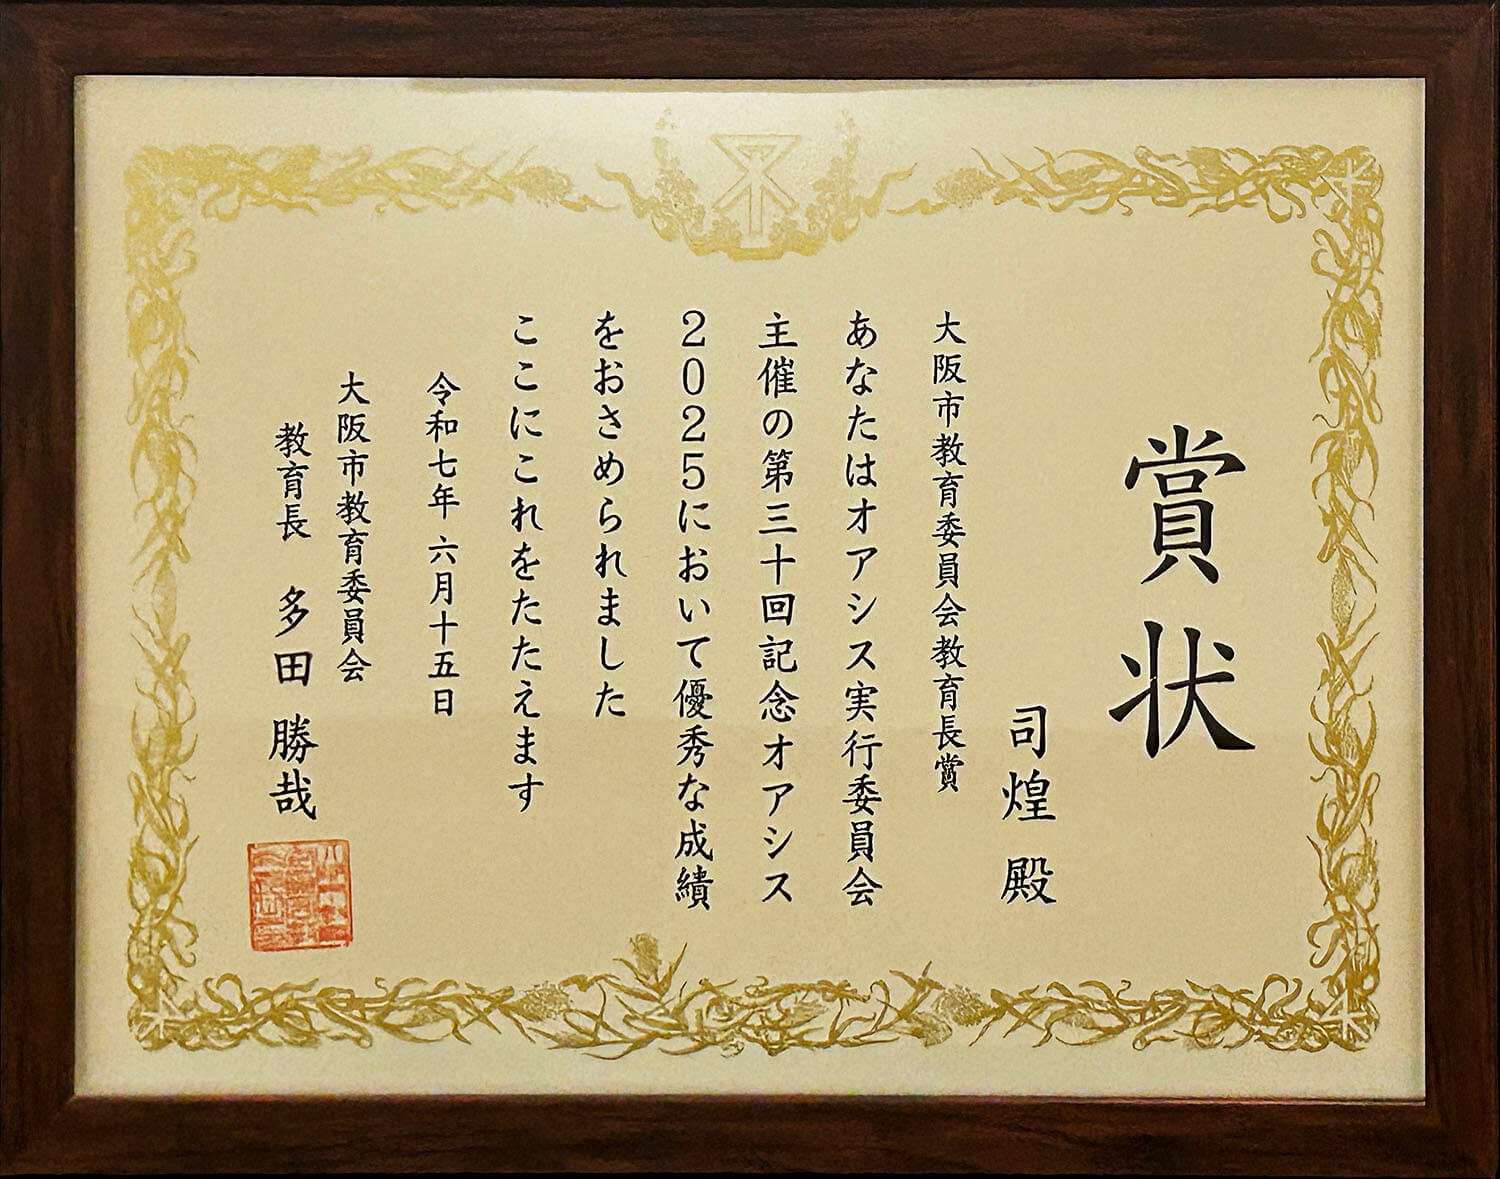 賞状
司煌 殿
大阪市教育委員会教育長賞
あなたはオアシス実行委員会
主催の第三十回記念オアシス
2025において優秀な成績
をおさめられました
ここにこれをたたえます
令和七年 六月十五日
大阪市教育委員会
教育長 多田 勝哉